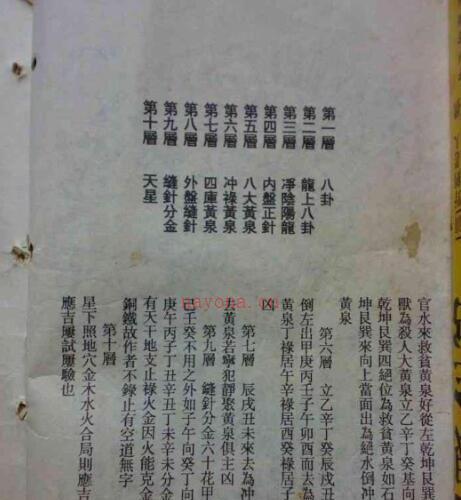 第一層 八卦
第二層 龍上八卦
第三層 淨陰陽龍
第四層 內盤正針
第五層 八大黃泉
第六層 冲祿黃泉
第七層 四庫黃泉
第八層 外盤縫針
第九層 縫針分金
第十層 天星
官水來救貧黃泉好從左乾坤艮巽
獸為殺人大黃泉立乙辛丁癸基向
乾坤艮巽四個絕位為救貧黃泉如石
坤艮巽來向上當面出為絕水倒冲
黃泉
第六層 立乙辛丁癸辰戌丑
倒左出甲庚丙壬子午卯酉而去為
黃泉丁祿居午辛祿居酉癸祿居子
凶
第七層 辰戌丑未來去為冲
去黃泉若寧犯靜聚黃泉俱主凶
第九層 縫針分金六十花甲
己壬癸不用之外如子午向癸丁向
庚午丙子丁丑辛丑丁未辛未分金
有天干地支止祿火金因火能克金
銅鐵故作者不錄止有空道無字
第十層
星下照地穴金木水火合局則應吉
應吉屢試屢驗也
nayona.cn